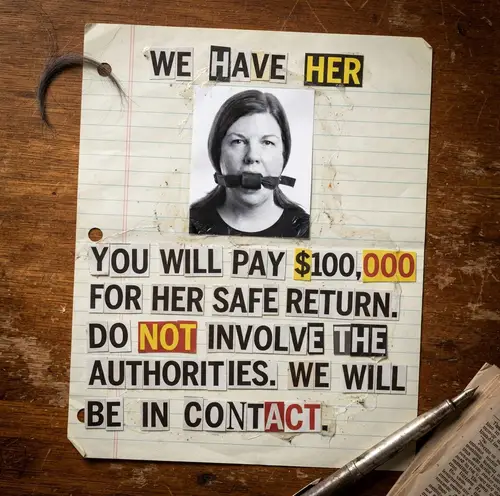 WE HAVE HER
YOU WILL PAY $100,000
FOR HER SAFE RETURN.
DO NOT INVOLVE THE
AUTHORITIES. WE WILL
BE IN CONTACT.